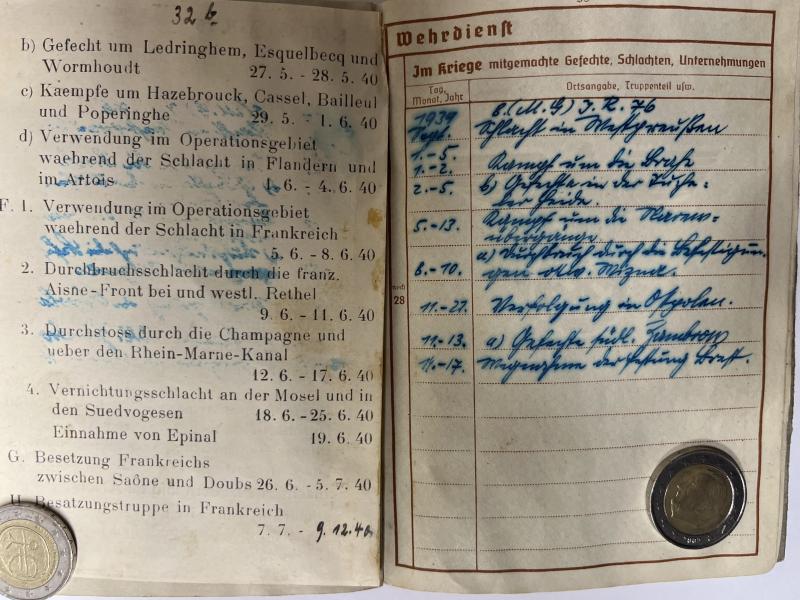 32 b
b) Gefecht um Ledringhem, Esquelbecq und
Wormhoudt 27. 5. - 28. 5. 40
c) Kaempfe um Hazebrouck, Cassel, Bailleul
und Poperinghe 29. 5. - 1. 6. 40
d) Verwendung im Operationsgebiet
waehrend der Schlacht in Flandern und
im Artois 1. 6. - 4. 6. 40
F. 1. Verwendung im Operationsgebiet
waehrend der Schlacht in Frankreich
5. 6. - 8. 6. 40
2. Durchbruchsschlacht durch die franz.
Aisne-Front bei und westl. Rethel
9. 6. - 11. 6. 40
3. Durchstoss durch die Champagne und
ueber den Rhein-Marne-Kanal
12. 6. - 17. 6. 40
4. Vernichtungsschlacht an der Mosel und in
den Suedvogesen 18. 6. - 25. 6. 40
Einnahme von Epinal 19. 6. 40
G. Besetzung Frankreichs
zwischen Saône und Doubs 26. 6. - 5. 7. 40
H. Besatzungstruppe in Frankreich
7. 7. - 9. 12. 40
Wehrdienst
Im Kriege mitgemachte Gefechte, Schlachten, Unternehmungen
Tag, Monat, Jahr
Ortsangabe, Truppenteil usw.
8. (M. G) J. R. 76
1939
Sept. Schlacht in Westpreußen
1.-5.
1.-2. Kampf um die Brahe
2.-5. b) Gefechte in der Tuche-
ler Heide.
5.-13. Kampf um die Narew-
übergänge
a) Durchbruch durch die Befestigun-
8.-10. gen
noch
28
11.-27. Verfolgung in Ostpolen.
11.-13. a) Gefechte südl. Zambrow
14.-17. Wegnahme der Festung Brest.